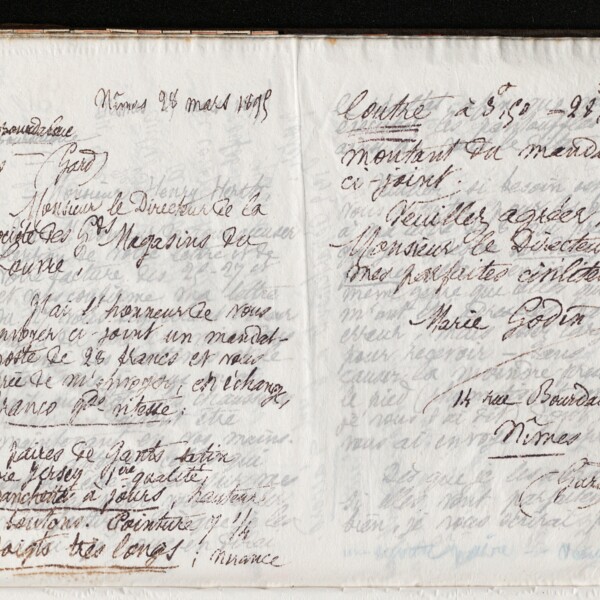 Nîmes 28 mars 1895
(Gard)
Monsieur le Directeur de la
Société des Gds Magasins du
Louvre,
J'ai l'honneur de vous
envoyer ci-joint un mandat-
poste de 28 francs et vous
prie de m'envoyer, en échange,
franco gde vitesse:
paires de Gants satin
Jersey 1ère qualité,
manchette à jours, hauteur
boutons Pointure 7 1/4
doigts très longs; nuance
Loutre à 3f50 = 28f
montant du mandat
ci-joint.
Veuillez agréer,
Monsieur le Directeur
mes parfaites civilités
Marie Godin
14 rue Bourdal
Nîmes
(Gard